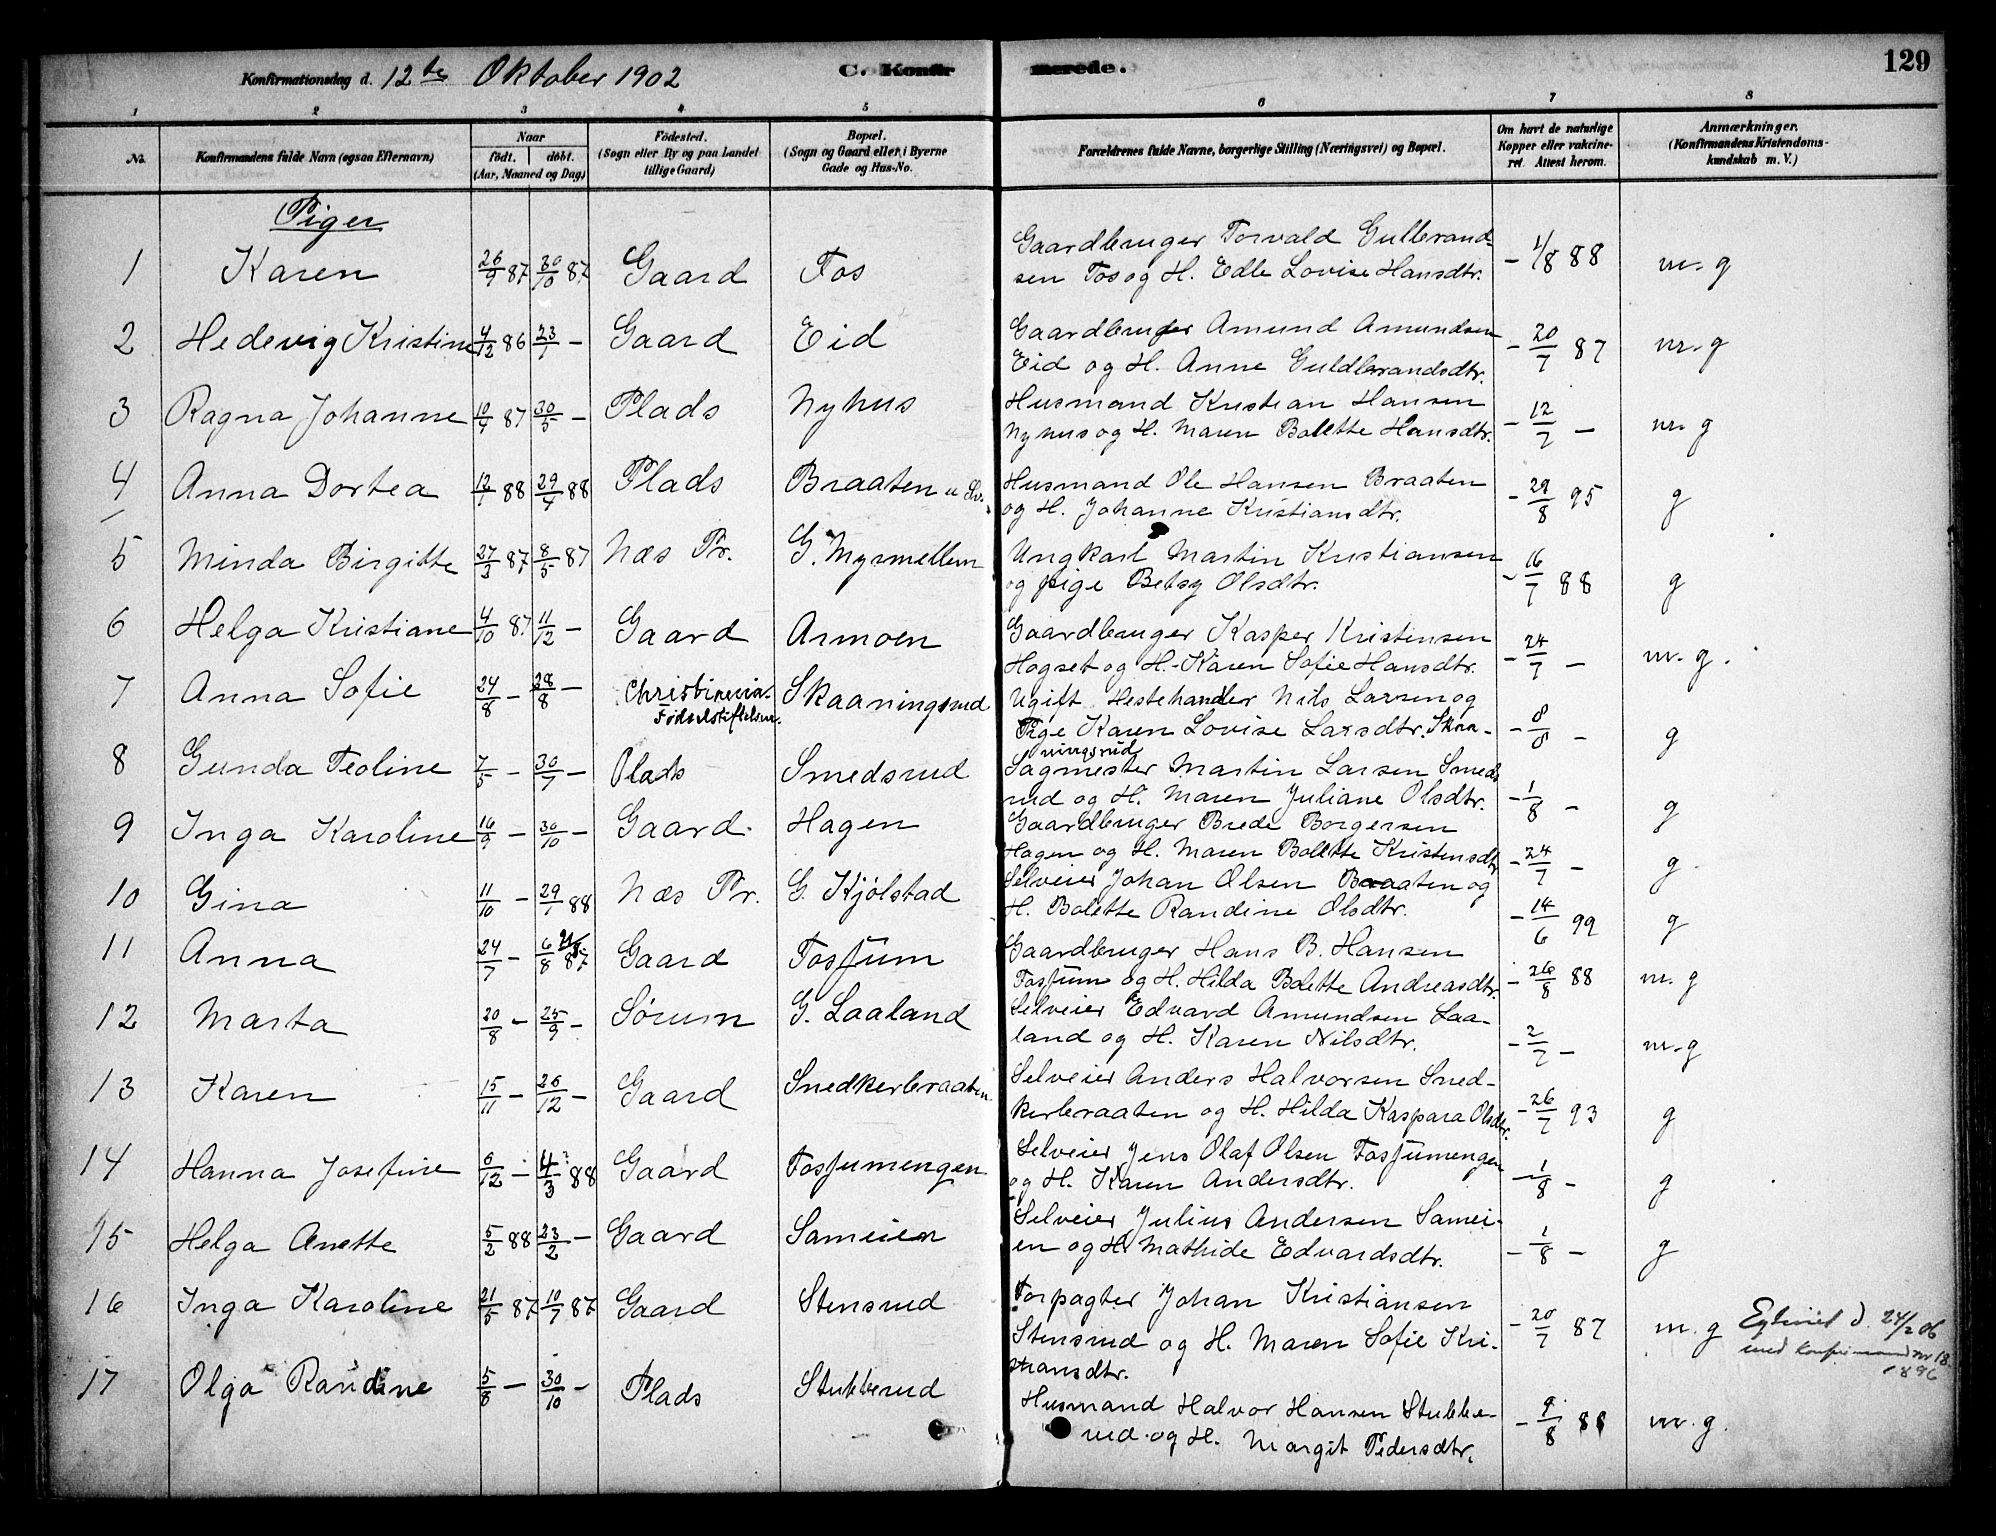 Konfirmationsdag d. 12te Oktober 1902 C. Konfirmerede. 129
1 2 3 4 5 6 7 8
No. Konfirmandens fulde Navn (ogsaa Efternavn) Naar født. døbt. (Aar, Maaned og Dag) Fødested. (Sogn eller By og paa Landet tillige Gaard) Bopæl. (Sogn og Gaard eller i Byerne Gade og Hus-No. Forældrenes fulde Navne, borgerlige Stilling (Næringsvei) og Bopæl. Om havt de naturlige Kopper eller vakcineret. Attest herom. Anmærkninger. (Konfirmandens Kristendomskundskab m. V.)
Piger
1 Karen 26/9 87 30/10 87 Gaard Fos Gaardbruger Torvald Gulbrand-
sen Fos og H. Edle Lovise Hansdtr. - 1/8 88 m. g
2 Hedevig Kristine 4/12 86 23/1 - Gaard Eid Gaardbruger Amund Amundsen
Eid og H. Anne Guldbrandsdtr. - 20/7 87 m. g
3 Ragna Johanne 10/4 87 30/5 - Plads Nyhus Husmand Kristian Hansen
Nyhus og H. Maren Bolette Hansdtr. - 12/7 - m. g
4 Anna Dortea 12/1 88 29/1 88 Plads Braaten Husmand Ole Hansen Braaten
og H. Johanne Kristiansdtr. - 29/8 95 g
5 Minda Birgitte 27/3 87 8/5 87 Næs Pr. G. Myrmellem Ungkarl Martin Kristiansen
og pige Betsy Olsdtr. - 16/7 88 g
6 Helga Kristiane 4/10 87 11/12 - Gaard Armoen Gaardbruger Kasper Kristensen
Hogset og H. Karen Sofie Hansdtr. - 24/7 - m. g.
7 Anna Sofie 24/8 - 28/8 - Christiania Fødselsstiftelsen. Skaaningsrud Ugift Hestehandler Nils Larsen og
Pige Karen Lovise Larsdtr. Skaa-
ningsrud - 8/8 - g
8 Gunda Teoline 7/5 - 30/7 - Plads Smedsrud Sagmester Martin Larsen Smeds
rud og H. Maren Juliane Olsdtr. - 1/8 - g
9 Inga Karoline 16/9 - 30/10 - Gaard. Hagen Gaardbruger Brede Borgersen
Hagen og H. Maren Bolette Kristensdtr - 24/7 - g.
10 Gina 11/10 - 29/1 88 Næs Pr. G. Kjølstad Selveier Johan Olsen Braaten og
H. Bolette Randine Olsdtr. - 14/6 99 g
11 Anna 24/7 - 6/8 87 Gaard Fosjum Gaardbruger Hans B. Hansen
Fosjum og H. Hilda Bolette Andreasdtr. - 26/8 88 m. g
12 Marta 20/8 - 25/9 - Sørum G. Laaland Selveier Edvard Amundsen Laa-
land og H. Karen Nilsdtr. - 2/7 - m. g
13 Karen 15/11 - 26/12 - Gaard Snedkerbraaten Selveier Anders Halvorsen Sned-
kerbraaten og H. Hilda Kaspara Olsdtr. - 26/7 93 g
14 Hanna Josefine 6/12 - 4/3 88 Gaard Fosjumengen Selveier Jens Olaf Olsen Fosjumengen
og H. Karen Andersdtr. - 1/8 - g
15 Helga Anette 5/2 88 23/2 - Gaard Sameien Selveier Julius Andersen Samei-
en og H Mathide Edvardsdtr. - 1/8 - g
16 Inga Karoline 21/5 87 10/7 87 Gaard Stensrud Forpagter Johan Kristiansen
Stensrud og H. Maren Sofie Kri-
stiansdtr. - 20/7 87 m. g Egteviet d. 24/2 06
med konfirmand nr 18
1896
17 Olga Randine 5/8 - 30/10 - Plads Stubberud Husmand Halvor Hansen Stubbe-
rud og H. Margit Pedersdtr. - 9/8 88 m. g.